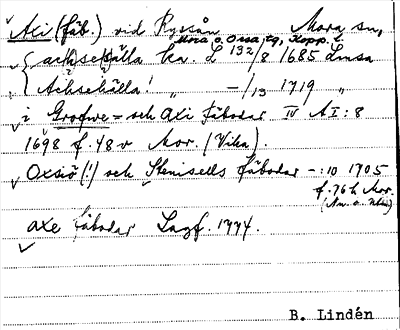 Axi (fäb.) vid Ryssån Mora sn,
Mora o. Orsa tg, Kopp. l.
achsehälla ha. L 132/8 1685 Lmsa
Achsehälla! „ -/13 1719 „
i Grofwe= och Axi Fäbodar IV A I: 8
1698 f. 48 v Mor. (Vika).
Oxsiö (!) och Stenisells Fäbodar -:10 1705
f. 76 b Mor.
axe Fäbodar Lagf. 1774.
B. Lindén